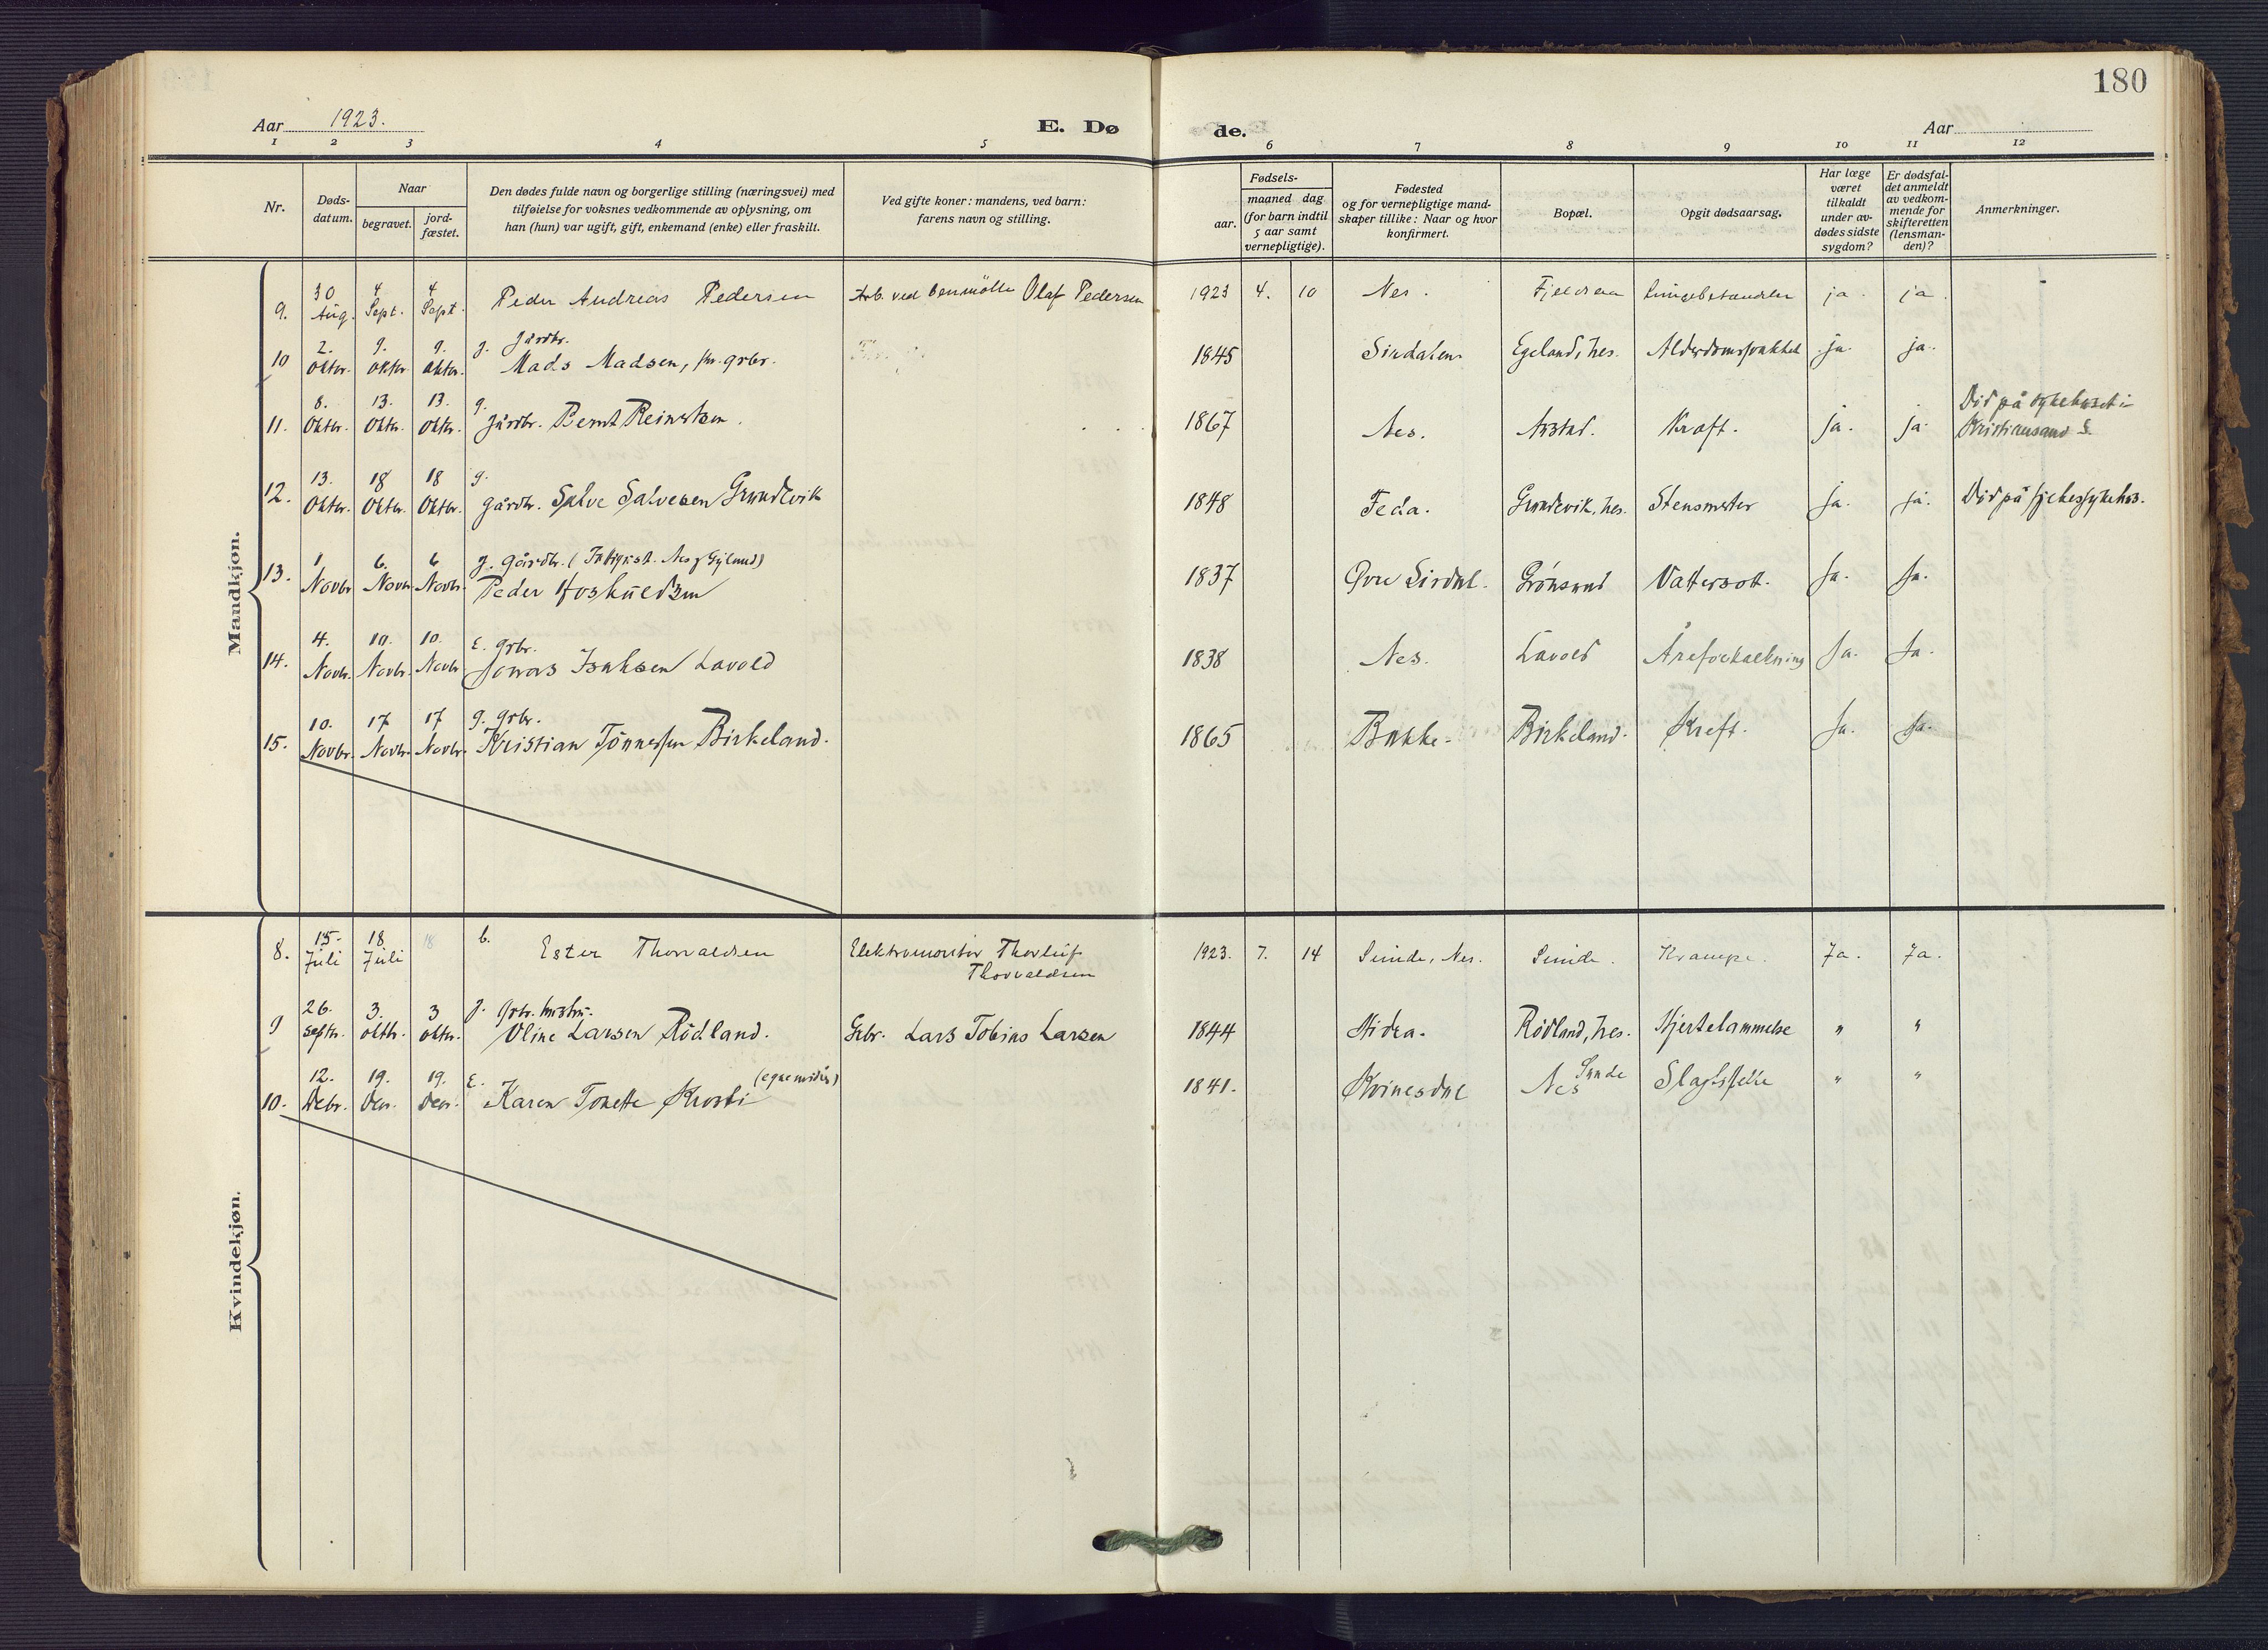 180
Aar 1923.
E. Dø
de.
Aar
1 2 3 4 5 6 7 8 9 10 11 12
Nr.
Døds-
datum.
Naar
begravet.
jord-
fæstet.
Den dødes fulde navn og borgerlige stilling (næringsvei) med
tilføielse for voksnes vedkommende av oplysning, om
han (hun) var ugift, gift, enkemand (enke) eller fraskilt.
Ved gifte koner: mandens, ved barn:
farens navn og stilling.
Fødsels-
aar.
maaned dag
(for barn indtil
5 aar samt
vernepligtige).
Fødested
og for vernepligtige mand-
skaper tillike: Naar og hvor
konfirmert.
Bopæl.
Opgit dødsaarsag.
Har læge
været
tilkaldt
under av-
dødes sidste
sygdom?
Er dødsfal-
det anmeldt
av vedkom-
mende for
skifteretten
(lensman-
den)?
Anmerkninger.
Mandkjøn.
9. 30 Aug. 4 Sept. 4 Sept. Peder Andreas Pedersen Arb. ved Olaf Pedersen 1923 4. 10 Nes. ja. ja.
10 2. Oktbr. 9. Oktbr. 9. Oktbr. g. Gårdbr.
Mads Madsen, 1845 Sirdalen Egeland, Nes. ja. ja.
11. 8. Oktbr. 13. Oktbr. 13. Oktbr. g.
Gårdbr. Bernt Reinertsen. 1867 Nes. Kræft. ja. ja. Død på sykehuset i
Kristiansand S.
12. 13. Oktbr. 18 Oktbr. 18 Oktbr. g.
gårdbr. Salve Salvesen Grundevik 1848 Feda. Grundevik, Nes. ja. ja. Død på
13. 1 Novbr 6. Novbr 6 Novbr. g. Gårdbr.
Peder 1837 Øvre Sirdal. Grönsund Vattersott. Ja. Ja.
14. 4. Novbr. 10. Novbr. 10. Novbr E. grbr.
Jonas Isaksen Lavold 1838 Nes. Lavold Åreforkalkning Ja. Ja.
15. 10. Novbr. 17 Novbr. 17 Novbr. g. grbr.
Kristian Tönnessen Birkeland. 1865 Bakke. Birkeland. Kreft. Ja. Ja.
Kvindekjøn.
8. 15. Juli 18 Juli 18 b. Ester Thorvaldsen Elektromontør Thorleif
Thorvaldsen 1923. 7. 14 Sunde, Nes. Sunde. Krampe. Ja. Ja.
9 26. Septbr. 3. oktbr. 3 oktbr. g. Grbr. hustru.
Oline Larsen Rödland. Grbr. Lars Tobias Larsen 1844 Hidra. Rødland, Nes. Hjertelammelse " "
10. 12. Decbr. 19. Decr. 19. Decr. E.
Karen Tonette 1841. Kvinesdal Sunde
Nes " "